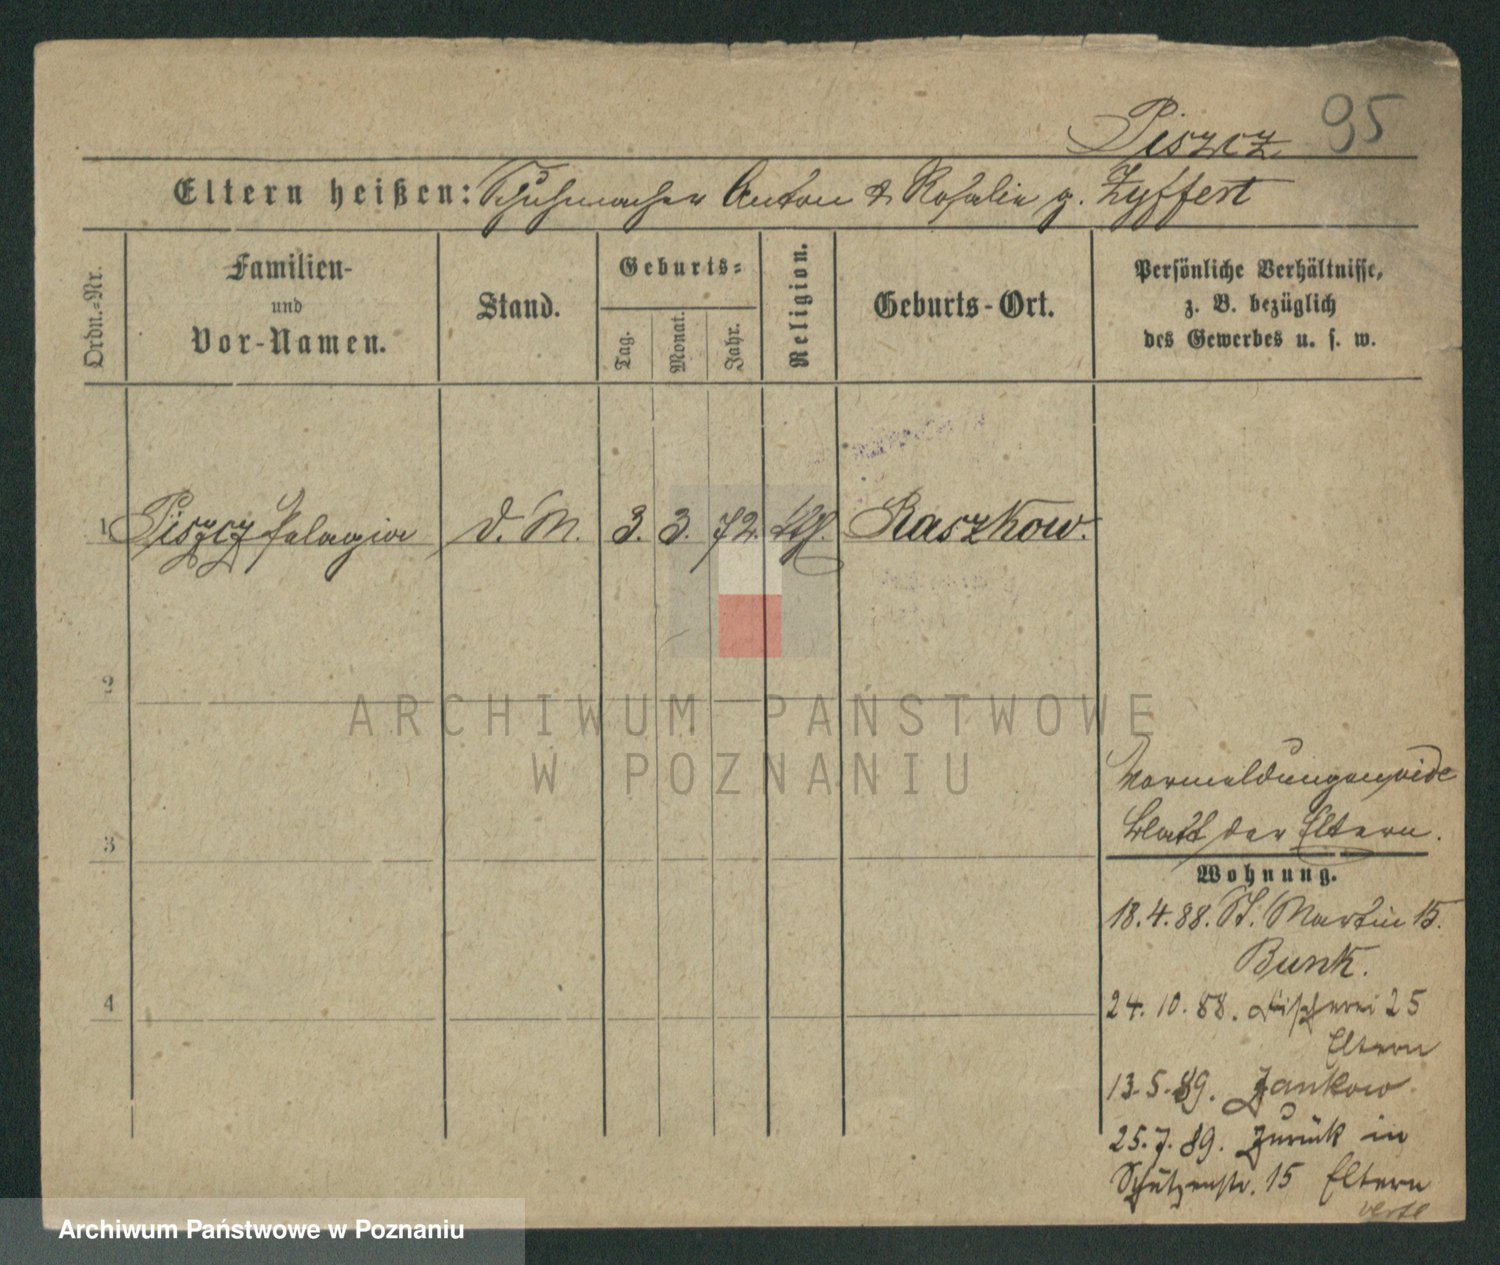 Piszcz 95
Eltern heißen: Schuhmacher Anton & Rosalie g. Zyffert
Ordn.-Nr.
Familien-
und
Vor-Namen.
Stand.
Geburts-
Tag.
Monat.
Jahr.
Religion.
Geburts-Ort.
Persönliche Verhältnisse,
z. B. bezüglich
des Gewerbes u. s. w.
1 Piszcz Pelagia d. M. 3. 3. 72. kth. Raszkow.
2
3
4
Vormeldungen vide
Blatt der Eltern.
Wohnung.
18.4.88. St. Martin 15.
Bunk.
24.10.88. Fischerei 25
Eltern
13.5.89. Jankow
25.7.89. Zurück in
Schützenstr. 15 Eltern
ARCHIWUM PAŃSTWOWE
W POZNANIU
Archiwum Państwowe w Poznaniu